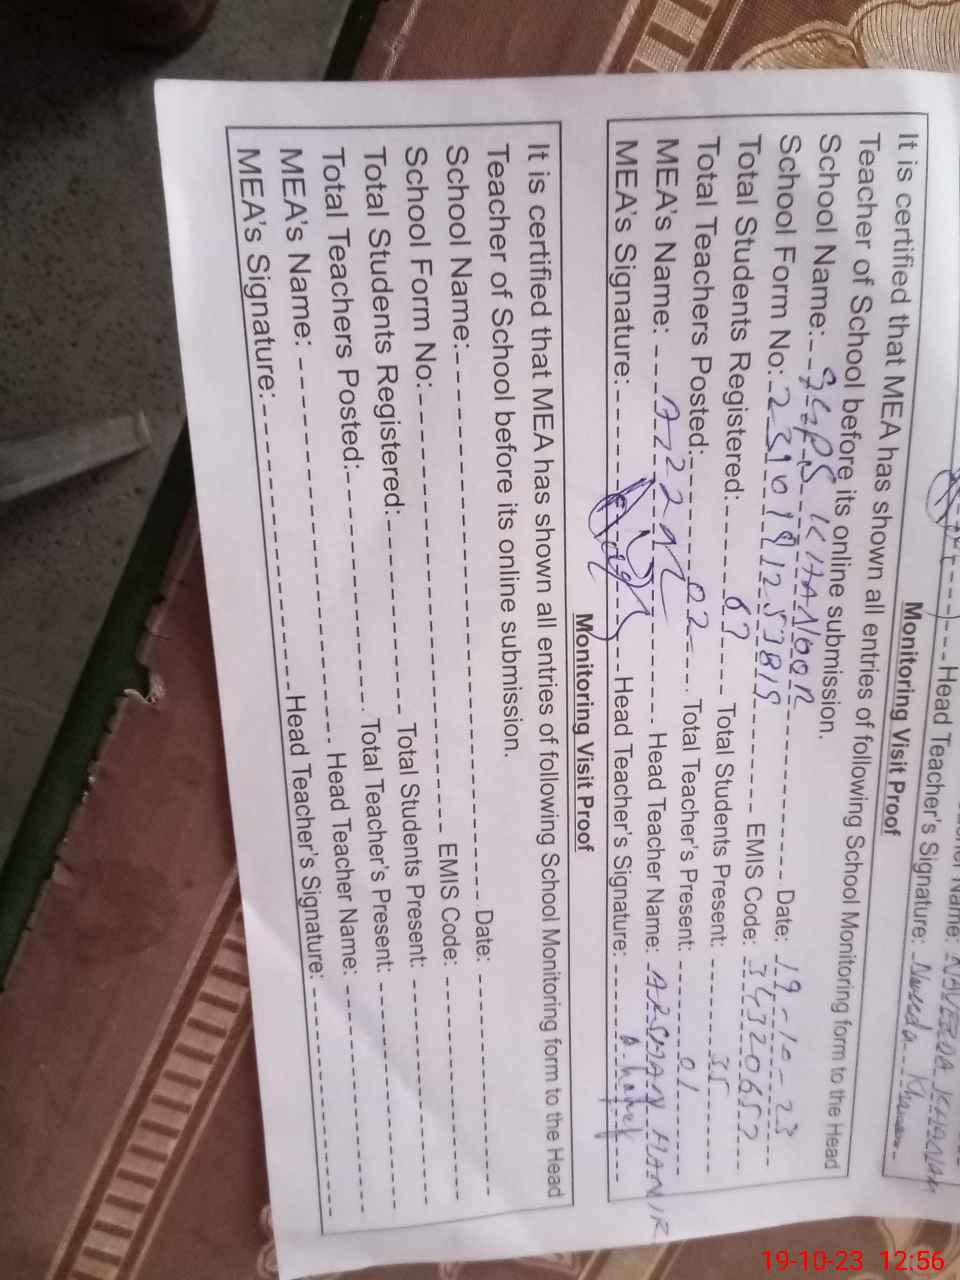 Name: NAVEEDA KHANAM
Head Teacher's Signature: Naveeda Khanam
Monitoring Visit Proof
It is certified that MEA has shown all entries of following School Monitoring form to the Head
Teacher of School before its online submission.
School Name: KHANGOR Date: 19-10-23
School Form No: EMIS Code:
Total Students Registered: 67 Total Students Present: 35
Total Teachers Posted: 02 Total Teacher's Present: 01
MEA's Name: Head Teacher Name:
MEA's Signature: Head Teacher's Signature:
Monitoring Visit Proof
It is certified that MEA has shown all entries of following School Monitoring form to the Head
Teacher of School before its online submission.
School Name: Date:
School Form No: EMIS Code:
Total Students Registered: Total Students Present:
Total Teachers Posted: Total Teacher's Present:
MEA's Name: Head Teacher Name:
MEA's Signature: Head Teacher's Signature:
19-10-23 12:56